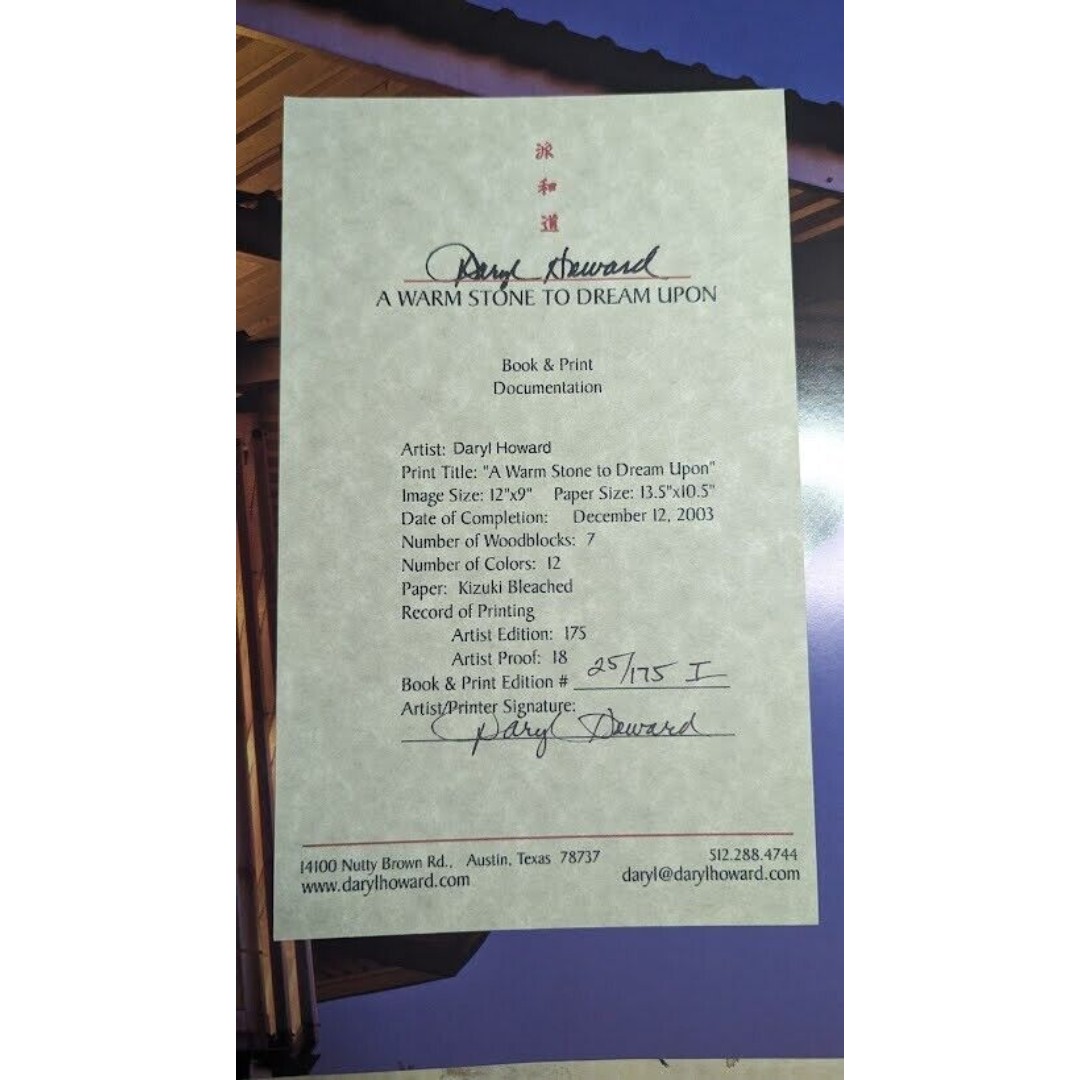 派
和
道
Daryl Howard
A WARM STONE TO DREAM UPON
Book & Print
Documentation
Artist: Daryl Howard
Print Title: "A Warm Stone to Dream Upon"
Image Size: 12"x9" Paper Size: 13.5"x10.5"
Date of Completion: December 12, 2003
Number of Woodblocks: 7
Number of Colors: 12
Paper: Kizuki Bleached
Record of Printing
Artist Edition: 175
Artist Proof: 18
Book & Print Edition # 25/175 I
Artist/Printer Signature:
Daryl Howard
14100 Nutty Brown Rd., Austin, Texas 78737 512.288.4744
www.darylhoward.com daryl@darylhoward.com